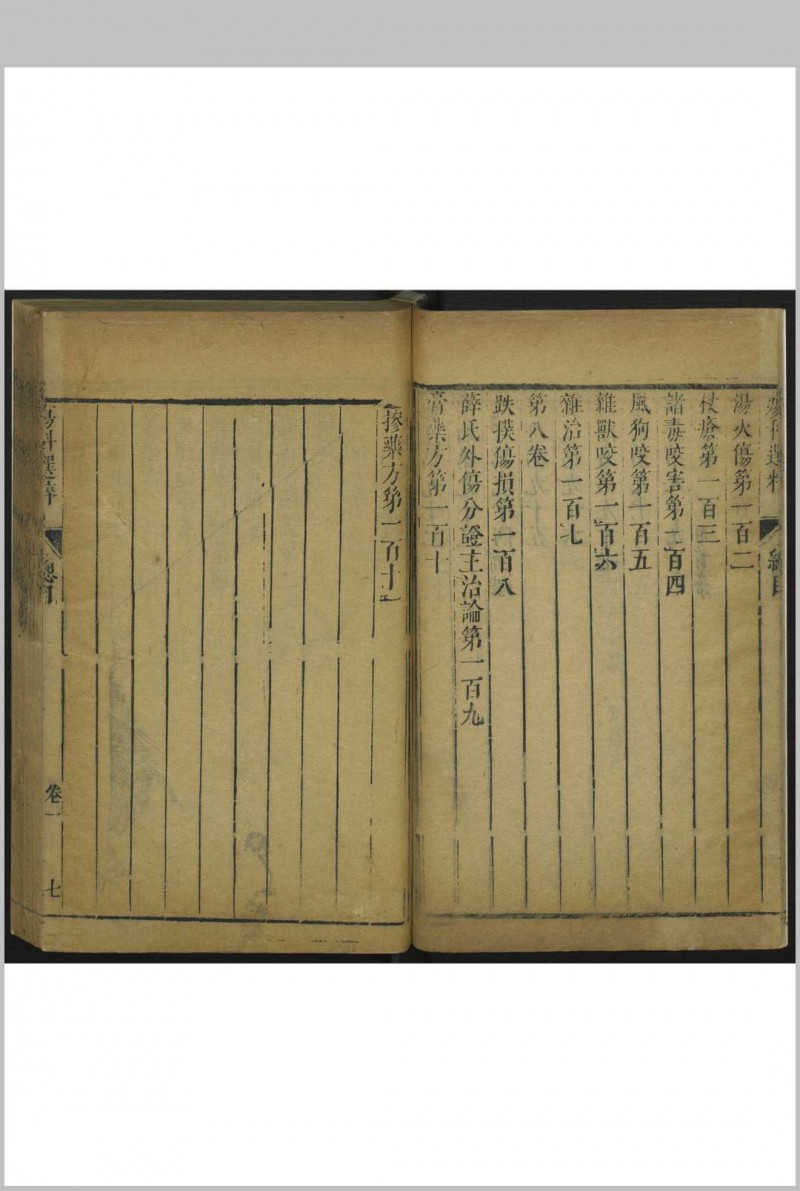 湯火傷第一百二
杖瘡第一百三
諸毒咬害第一百四
風狗咬第一百五
雜獸咬第一百六
雜治第一百七
第八卷
跌撲傷損第一百八
薛氏外傷分證主治論第一百九
膏藥方第一百十
摻藥方第一百十一
瘍科選粹
總目
卷一
七